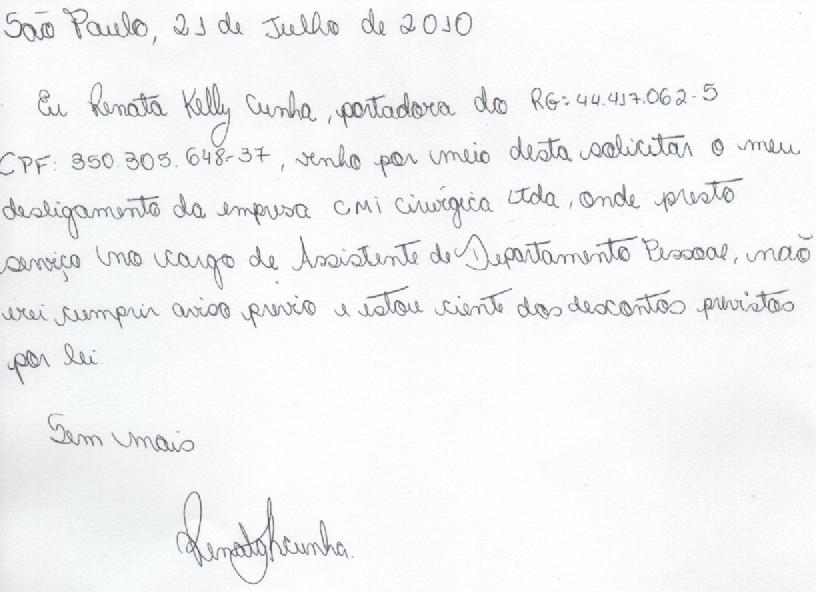 São Paulo, 21 de Julho de 2010
Eu Renata Kelly Cunha, portadora do RG: 44.417.062-5
CPF: 350.305.648-37, venho por meio desta solicitar o meu
desligamento da empresa CMi Cirúrgica Ltda, onde presto
serviço no cargo de Assistente de Departamento Pessoal, não
irei cumprir aviso previo e estou ciente dos descontos previstos
por lei
Sem mais
RenataKcunha.